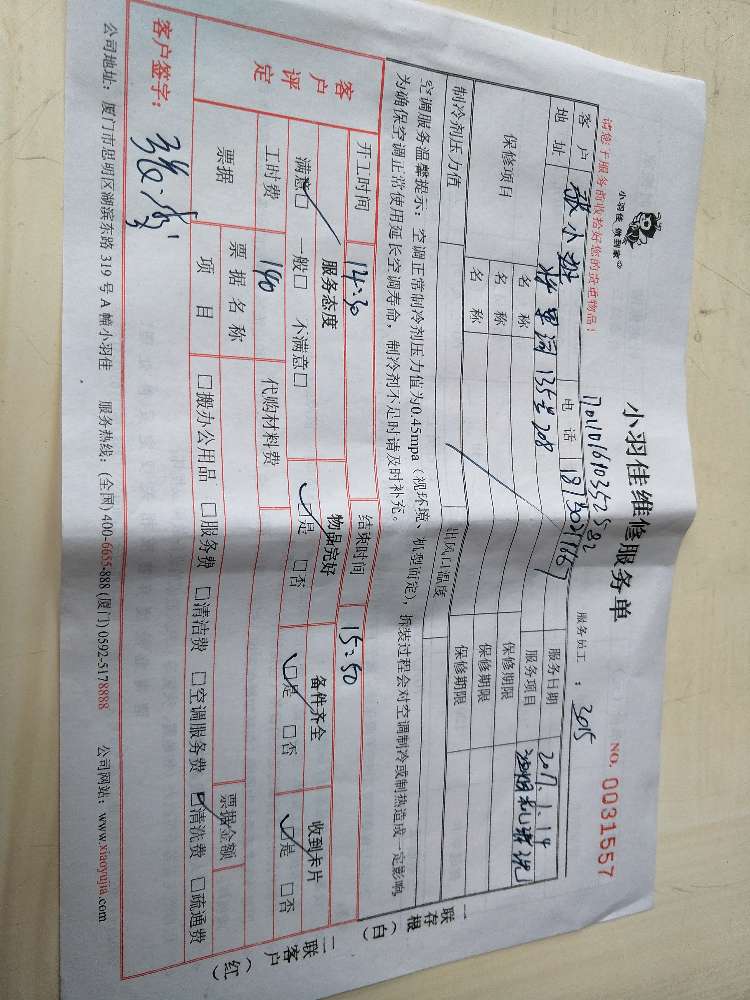 小羽佳 做到家
小羽佳维修服务单
NO. 0031557
请您于服务前收拾好您的贵重物品!
服务员工: 2015
客户
电话
服务日期 2017.1.14
地址 135号208
服务项目 油烟机清洗
保修项目 名称 保修期限
名称 保修期限
名称 保修期限
制冷剂压力值 出风口温度
空调服务温馨提示:空调正常制冷剂压力值为0.45mpa(视环境、机型而定),拆装过程会对空调制冷或制热造成一定影响,
为确保空调正常使用延长空调寿命,制冷剂不足时请及时补充。
一联存根(白)
二联客户(红)
开工时间 14:30 结束时间 15:50
客户评定 服务态度 物品完好 备件齐全 收到卡片
满意□ 一般□ 不满意□ □是 □否 □是 □否 □是 □否
工时费 190 代购材料费
票据 票据名称 票据金额
项目 □搬办公用品 □服务费 □清洁费 □空调服务费 □清洗费 □疏通费
客户签字:
公司地址:厦门市思明区湖滨东路319号A幢小羽佳 服务热线:(全国)400-6655-888 (厦门)0592-5178888 公司网站:www.xiaoyujia.com